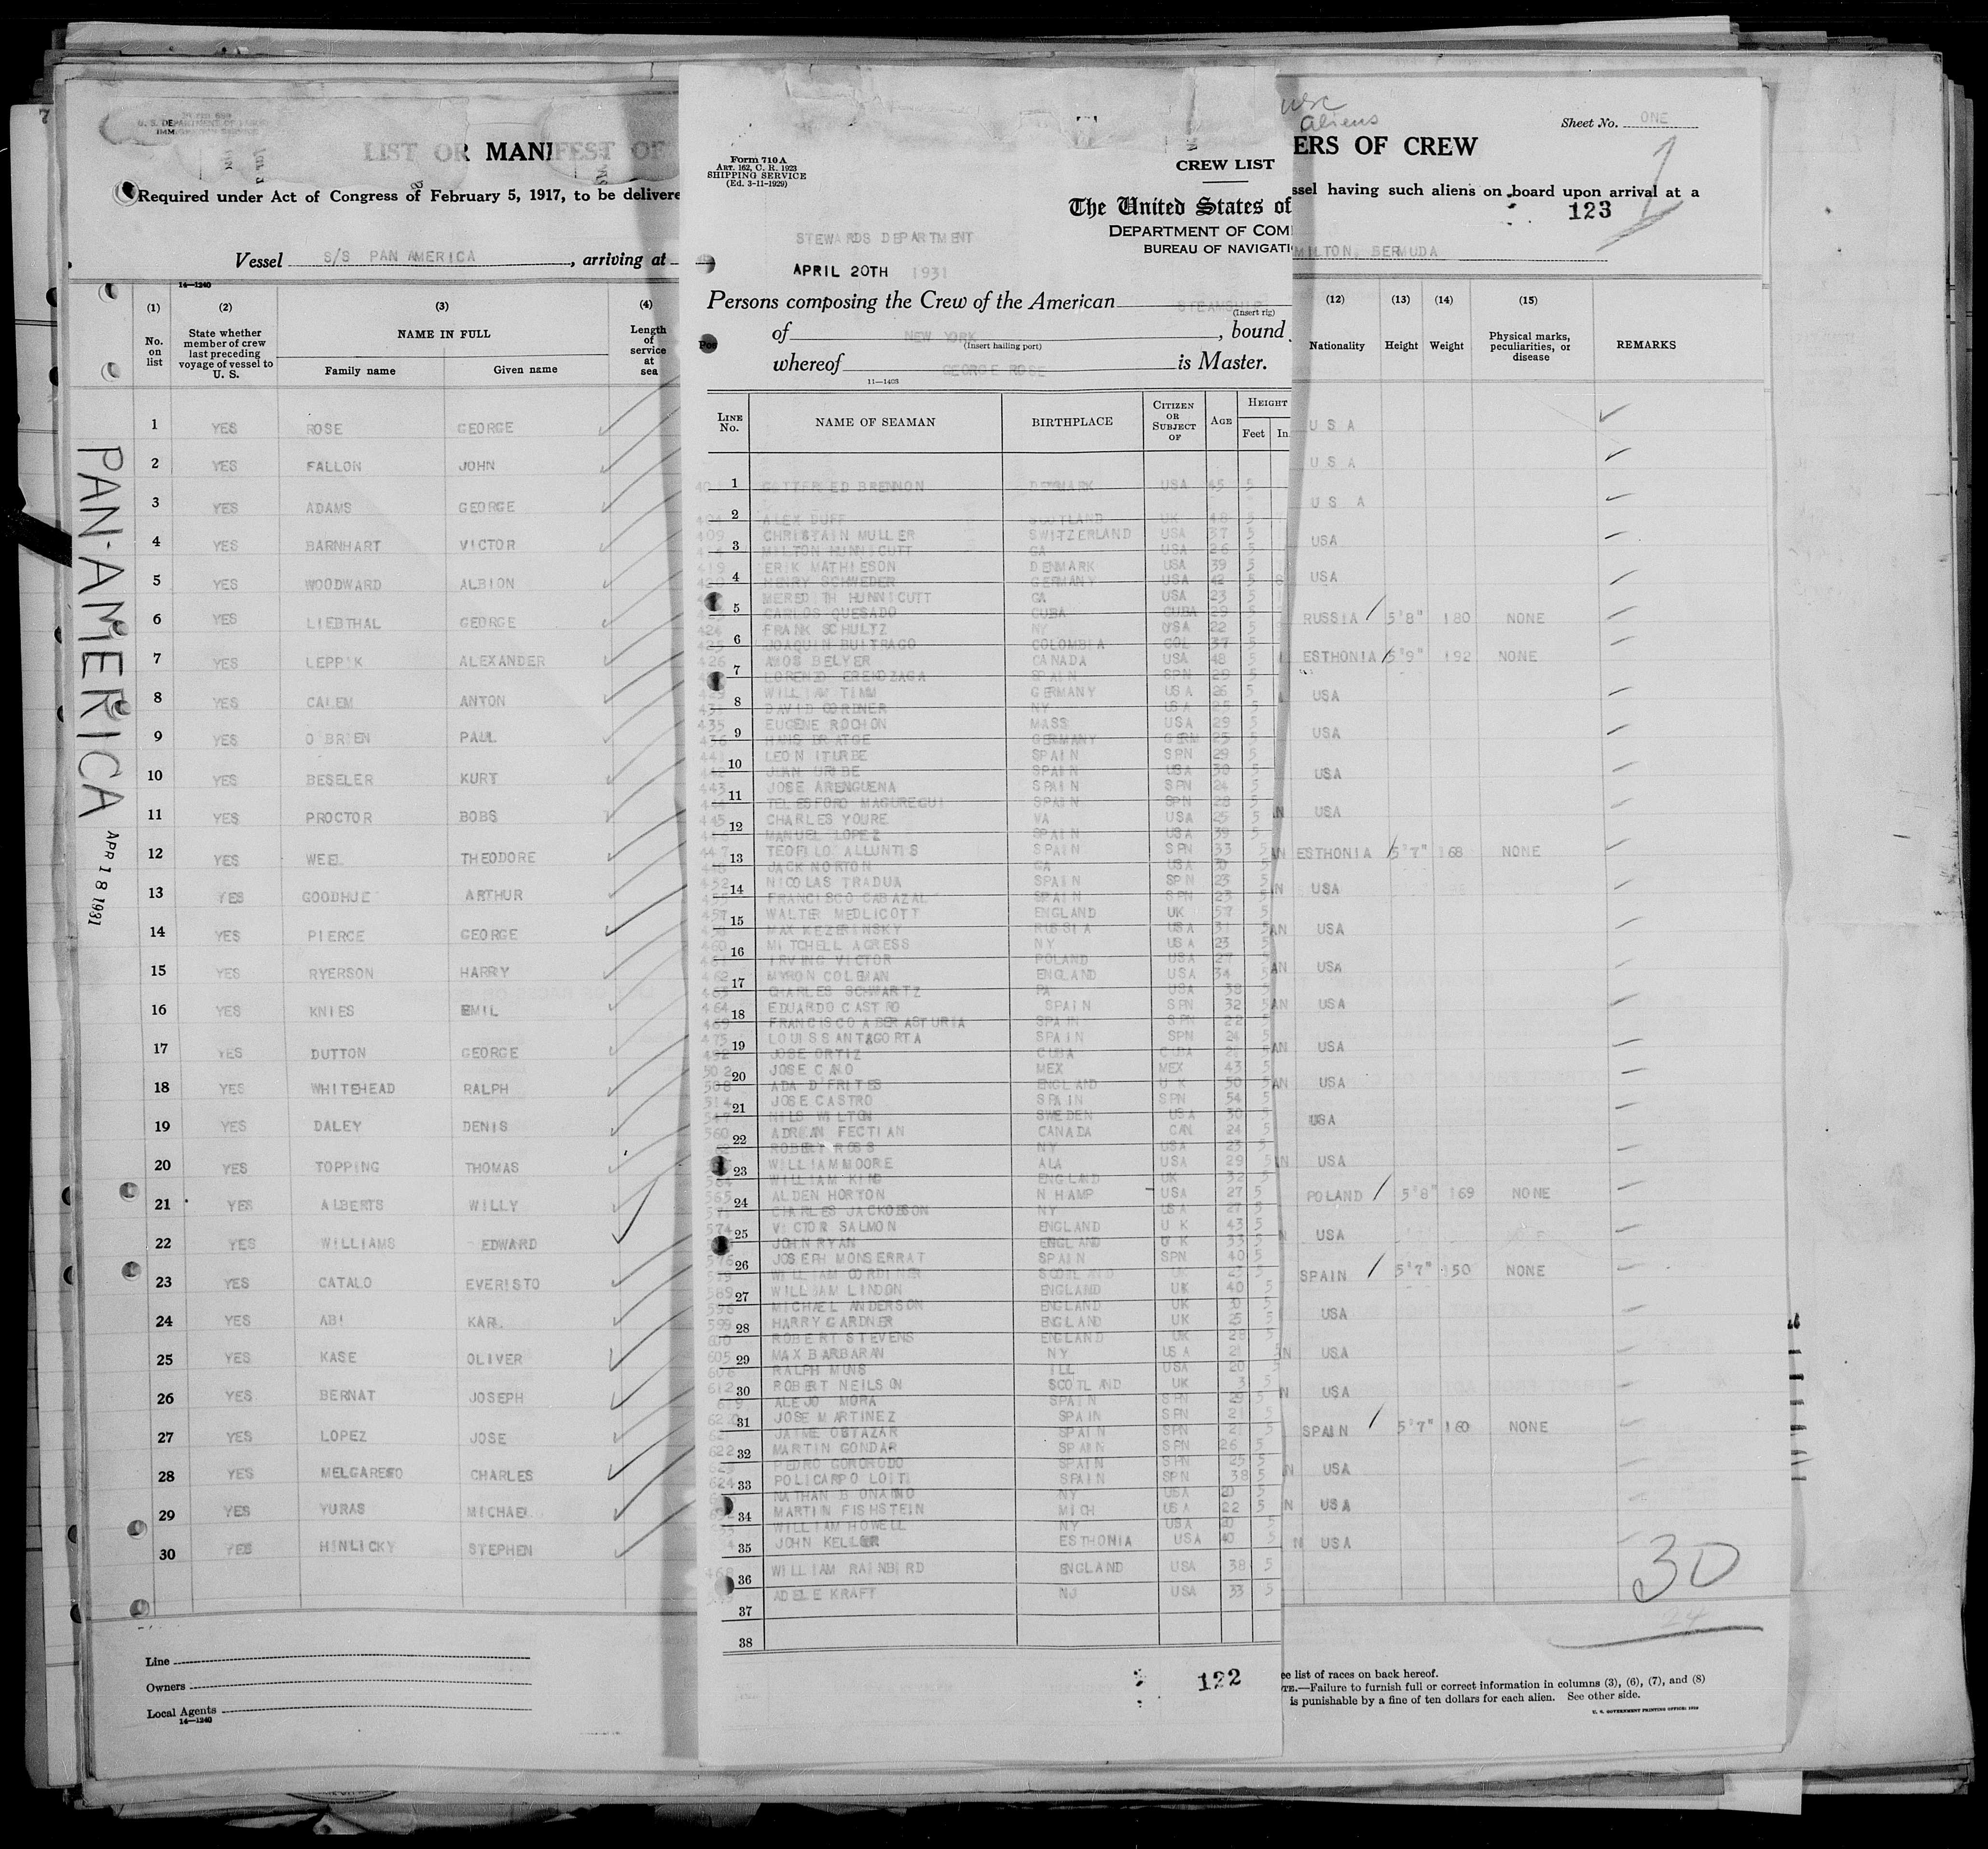 U. S. DEPARTMENT OF LABOR
LIST OR MANIFEST OF
Required under Act of Congress of February 5, 1917, to be delivere
Vessel S/S PAN AMERICA, arriving at
14—1240
(1) (2) (3) (4)
No. on list State whether member of crew last preceding voyage of vessel to U. S. NAME IN FULL Length of service at sea
Family name Given name
1 YES ROSE GEORGE
2 YES FALLON JOHN
3 YES ADAMS GEORGE
4 YES BARNHART VICTOR
5 YES WOODWARD ALBION
6 YES LIEBTHAL GEORGE
7 YES LEPPIK ALEXANDER
8 YES CALEM ANTON
9 YES O'BRIEN PAUL
10 YES BESELER KURT
11 YES PROCTOR BOBS
12 YES WEEL THEODORE
13 YES GOODHUE ARTHUR
14 YES PIERCE GEORGE
15 YES RYERSON HARRY
16 YES KNIES EMIL
17 YES DUTTON GEORGE
18 YES WHITEHEAD RALPH
19 YES DALEY DENIS
20 YES TOPPING THOMAS
21 YES ALBERTS WILLY
22 YES WILLIAMS EDWARD
23 YES CATALO EVERISTO
24 YES ABI KARL
25 YES KASE OLIVER
26 YES BERNAT JOSEPH
27 YES LOPEZ JOSE
28 YES MELGARESO CHARLES
29 YES YURAS MICHAEL
30 YES HINLICKY STEPHEN
Line
Owners
Local Agents
14—1240
PAN-AMERICA
APR 18 1931
Form 710 A
ART. 162, C. R. 1923
SHIPPING SERVICE
(Ed. 3-11-1929)
CREW LIST
The United States of
DEPARTMENT OF COM
BUREAU OF NAVIGATI
STEWARDS DEPARTMENT
APRIL 20TH 1931
Persons composing the Crew of the American STEAMSHIP
(Insert rig)
of NEW YORK, bound
(Insert hailing port)
whereof GEORGE ROSE is Master.
11—1403
LINE No. NAME OF SEAMAN BIRTHPLACE CITIZEN OR SUBJECT OF AGE HEIGHT
Feet In
1 GOTTFRIED BRENNON DENMARK USA 45 5
2 ALEX DUFF SCOTLAND UK 48 5
409 CHRISTAIN MULLER SWITZERLAND USA 37 5
3 MILTON HUNNICUTT GA USA 26 5
419 ERIK MATHIESON DENMARK USA 39 5
4 HENRY SCHWEDER GERMANY USA 42 5 8
MEREDITH HUNNICUTT GA USA 23 5
5 CARLOS QUESADO CUBA CUBA 29 5
424 FRANK SCHULTZ NY USA 22 5
6 425 JOAQUIN BUITRAGO COLOMBIA COL 37 5
426 AMOS BELYER CANADA USA 48 5
7 LORENZO ERENDZAGA SPAIN SPN 29 5
WILLIAM TIMM GERMANY USA 26 5
8 DAVID CORDNER NY USA 25 5
435 EUGENE ROCHON MASS USA 29 5
9 436 HANS BRATGE GERMANY GERM 25 5
441 LEON ITURBE SPAIN SPN 29 5
10 JUAN URIBE SPAIN USA 30 5
443 JOSE ARENGUENA SPAIN SPN 24 5
11 TELESFORO MAGUREGUI SPAIN SPN 28 5
445 CHARLES YOURE VA USA 25 5
12 MANUEL LOPEZ SPAIN USA 39 5
447 TEOFILO ALLUNTIS SPAIN SPN 33 5
13 JACK NORTON GA USA 30 5
452 NICOLAS TRADUA SPAIN SPN 23 5
14 FRANCISCO CABAZAL SPAIN SPN 23 5
457 WALTER MEDLICOTT ENGLAND UK 57 5
15 MAX KEZERINSKY RUSSIA USA 31 5
460 MITCHELL AGRESS NY USA 23 5
16 IRVING VICTOR POLAND USA 27 5
462 MYRON COLEMAN ENGLAND USA 34 5
17 463 CHARLES SCHWARTZ PA USA 38 5
464 EDUARDO CASTRO SPAIN SPN 32 5
18 469 FRANCISCO ABERASTURIA SPAIN SPN 22 5
475 LOUIS SANTAGORTA SPAIN SPN 24 5
19 492 JOSE ORTIZ CUBA CUBA 5
502 JOSE CANO MEX MEX 43 5
20 508 ADA D'FRITES ENGLAND U K 50 5
514 JOSE CASTRO SPAIN SPN 54 5
21 NILS WILTON SWEDEN USA 30 5
560 ADRIAN FECTIAN CANADA CAN 24 5
22 ROBERT ROSS NY USA 23 5
WILLIAM MOORE ALA USA 29 5
23 564 WILLIAM KING ENGLAND UK 32 5
565 ALDEN HORTON N HAMP USA 27 5
24 CHARLES JACKOBSON NY USA 27 5
574 VICTOR SALMON ENGLAND U K 43 5
25 JOHN RYAN ENGLAND U K 33 5
576 JOSEPH MONSERRAT SPAIN SPN 40 5
26 WILLIAM CORDINER SCOTLAND UK 23 5
589 WILLIAM LINDON ENGLAND UK 40 5
27 596 MICHAEL ANDERSON ENGLAND UK 30 5
599 HARRY GARDNER ENGLAND UK 25 5
28 600 ROBERT STEVENS ENGLAND UK 28 5
605 MAX BARBARAN NY USA 21
29 606 RALPH MUNS ILL USA 20 5
612 ROBERT NEILSON SCOTLAND UK 3 5
30 619 ALEJO MORA SPAIN SPN 29 5
JOSE MARTINEZ SPAIN SPN 21 5
31 JAIME OSTAZAR SPAIN SPN 21 5
622 MARTIN GONDAR SPAIN SPN 26 5
32 PEDRO GORORODO SPAIN SPN 25 5
624 POLICARPO LOITI SPAIN SPN 38 5
33 NATHAN BONANNO NY USA 20 5
MARTIN FISHSTEIN MICH USA 22 5
34 WILLIAM HOWELL NY USA 20 5
JOHN KELLER ESTHONIA USA 40 5
35
WILLIAM RAINBIRD ENGLAND USA 38 5
36
ADELE KRAFT NJ USA 33 5
37
38
122
aliens
Sheet No. ONE
ERS OF CREW
ssel having such aliens on board upon arrival at a
123
MILTON, BERMUDA
(12) (13) (14) (15)
Nationality Height Weight Physical marks, peculiarities, or disease REMARKS
U S A
U S A
U S A
USA
USA
RUSSIA 5'8" 180 NONE
ESTHONIA 5'9" 192 NONE
USA
USA
USA
USA
ESTHONIA 5'7" 168 NONE
USA
USA
USA
USA
USA
USA
USA
USA
POLAND 5'8" 169 NONE
USA
SPAIN 5'7" 150 NONE
USA
USA
USA
SPAIN 5'7" 160 NONE
USA
USA
USA
30
24
ee list of races on back hereof.
TE.—Failure to furnish full or correct information in columns (3), (6), (7), and (8)
is punishable by a fine of ten dollars for each alien. See other side.
U. S. GOVERNMENT PRINTING OFFICE: